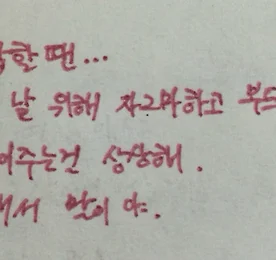 할 땐...
날 위해 자그마하고 부드
어주는건 상상해.
에서 말이야.